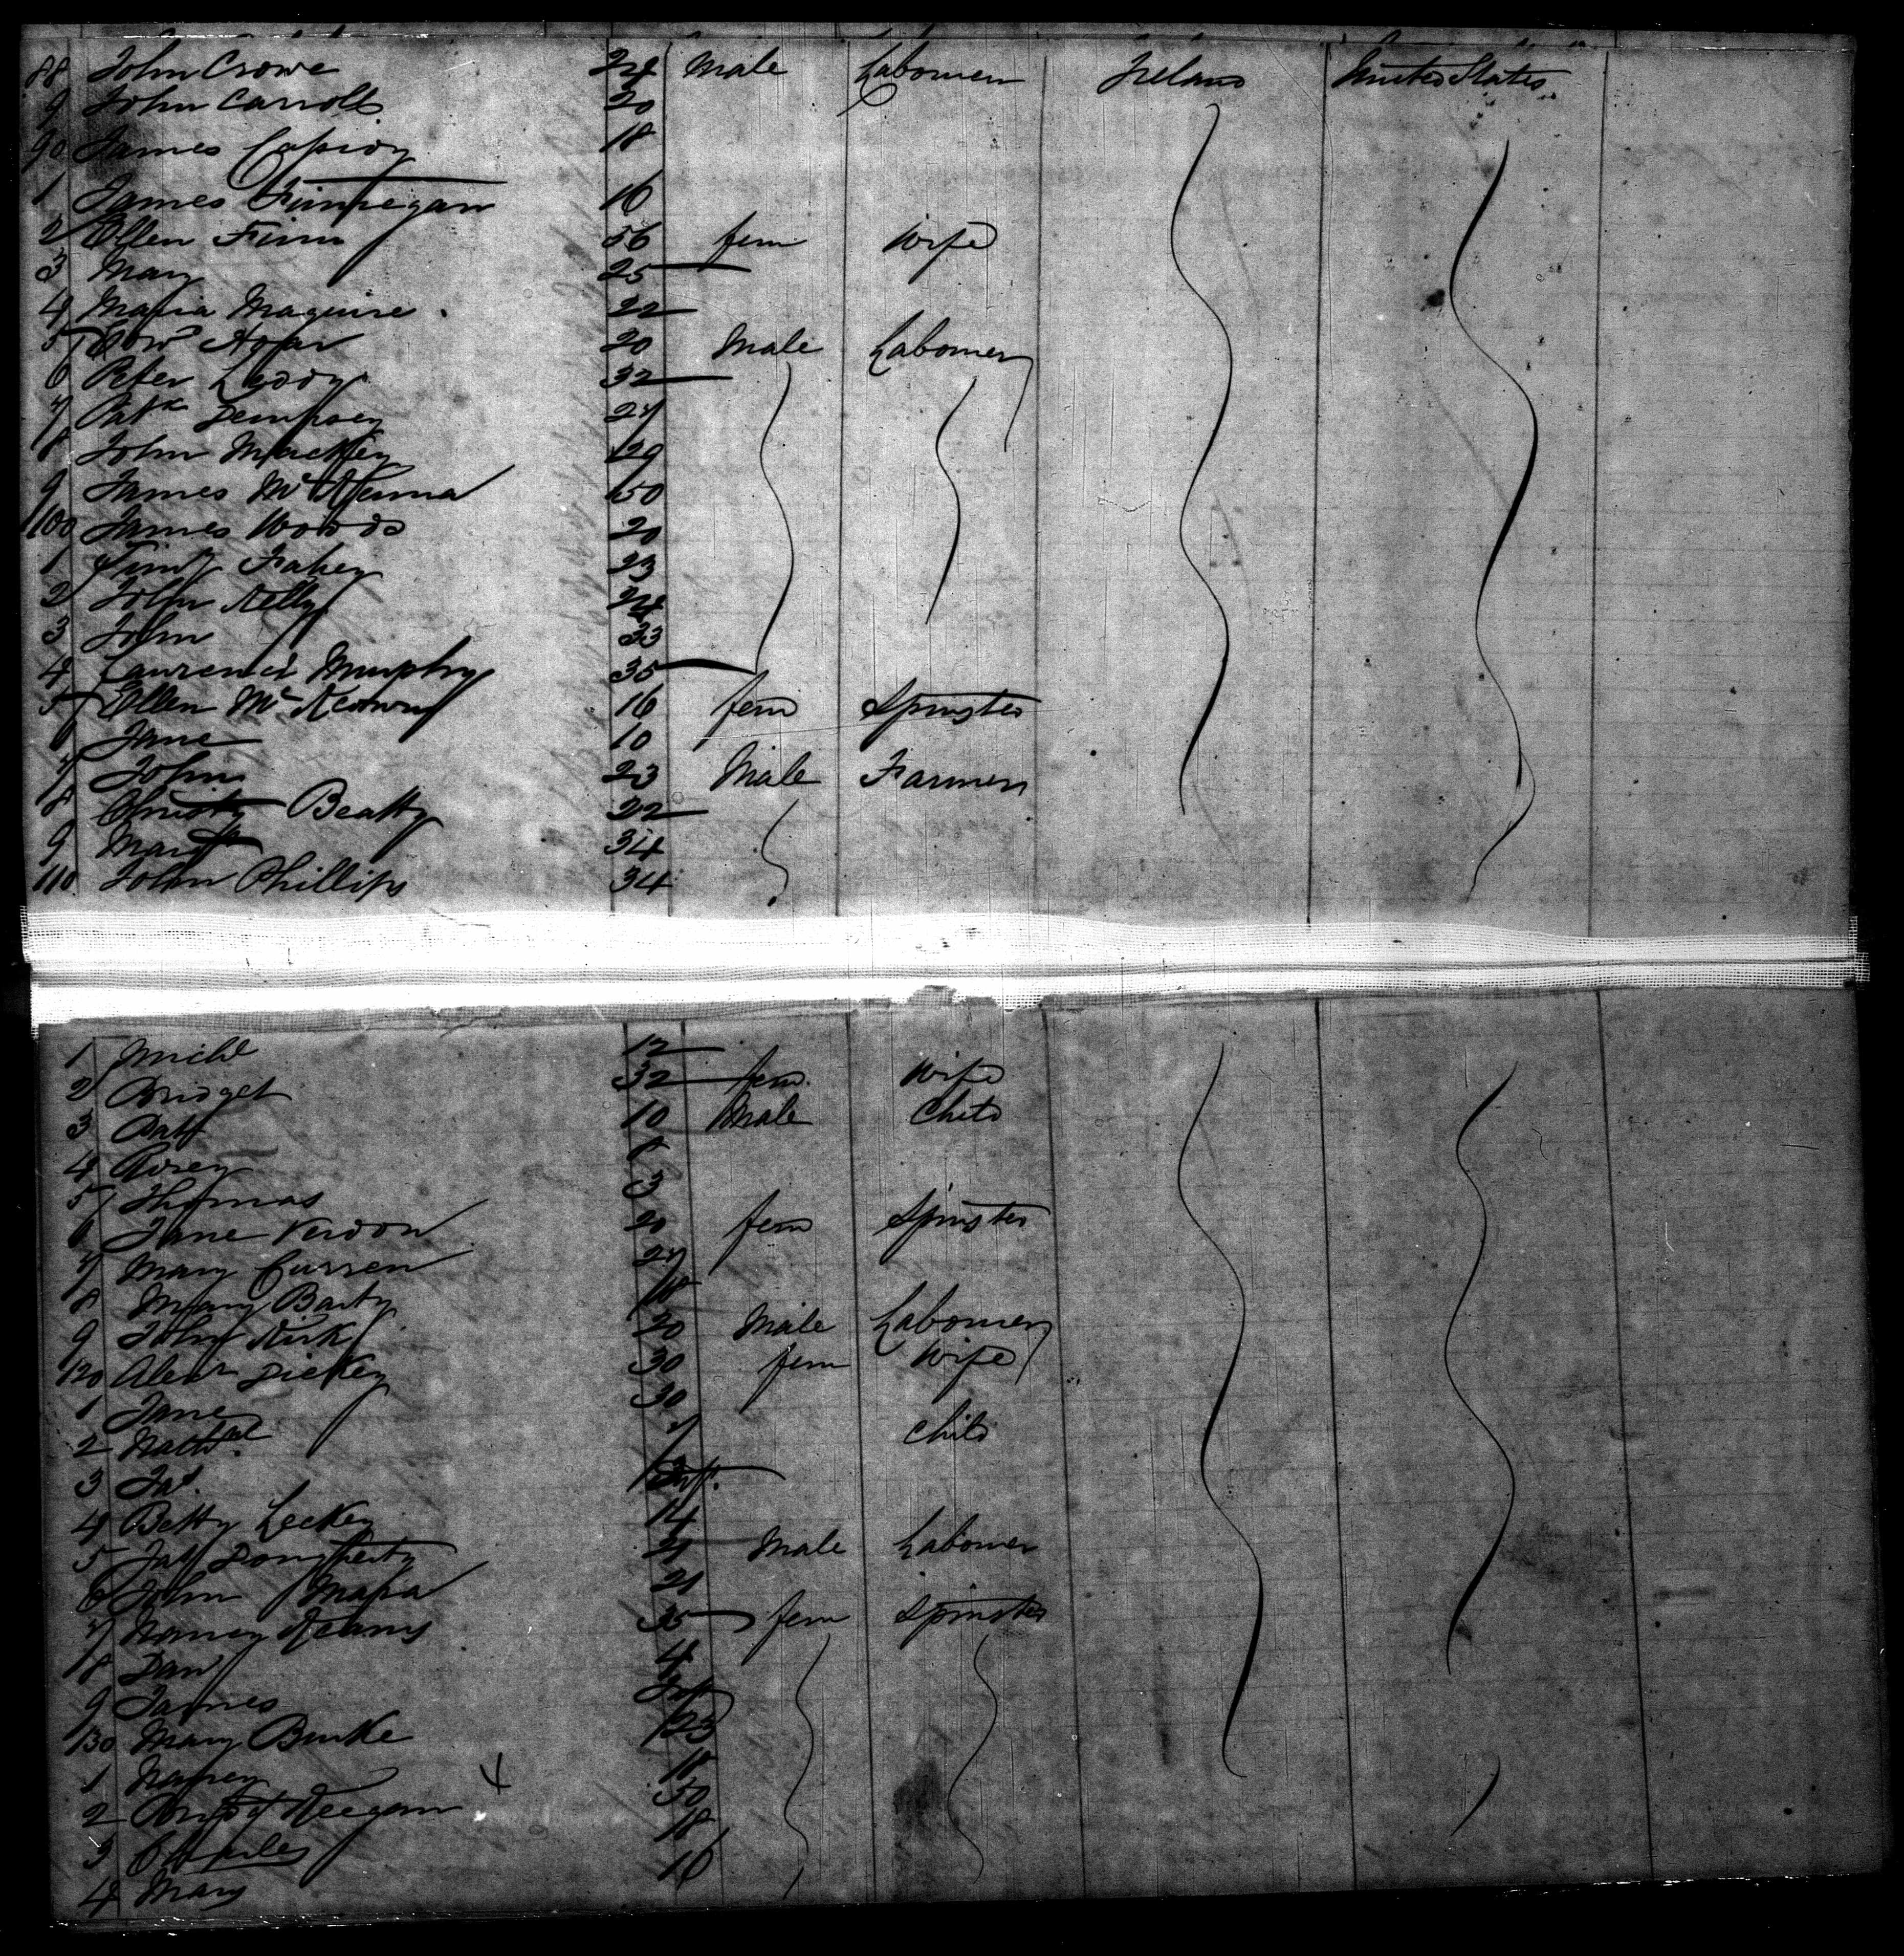 88 John Crowe 24 Male Labourer Ireland United States
9 John Carroll 20
90 James Casidy 18
1 James Finnegan 16
2 Ellen Finn 56 fem Wife
3 Mary 25
4 Maria Maguire 22
5 Edwd Hoar 20 Male Labourer
6 Peter Leddy 32
7 Patk Dempsey 27
8 John Mackey 29
9 James McKenna 50
100 James Woods 20
1 Timy Fahey 23
2 John Kelly 24
3 John 33
4 Laurence Murphy 35
5 Ellen McKeown 16 fem Spinster
6 Jane 10
7 John 23 Male Farmer
8 Christy Beatty 22
9 34
110 John Phillips 34
1 Michl 12
2 Bridget 32 fem Wife
3 Patk 10 Male Child
4 Rosey 8
5 Thomas 3
6 Jane Verdon 20 fem Spinster
7 Mary Curren 27
8 Mary Barty 18
9 John Kirk 20 Male Labourer
120 Alexr Dickey 30 fem Wife
1 Jane 30
2 Nathl 7 Child
3 Jas. Inft.
4 Betty Leckey 14
5 Jas Dougherty 21 Male Labourer
6 John 21
7 Nancy Kearns 35 fem Spinster
8 Dan 4
9 James Inft
130 Mary Burke 23
1 Nancy 18
2 Bridgt Keegan 50
3 Charles 18
4 Mary 16